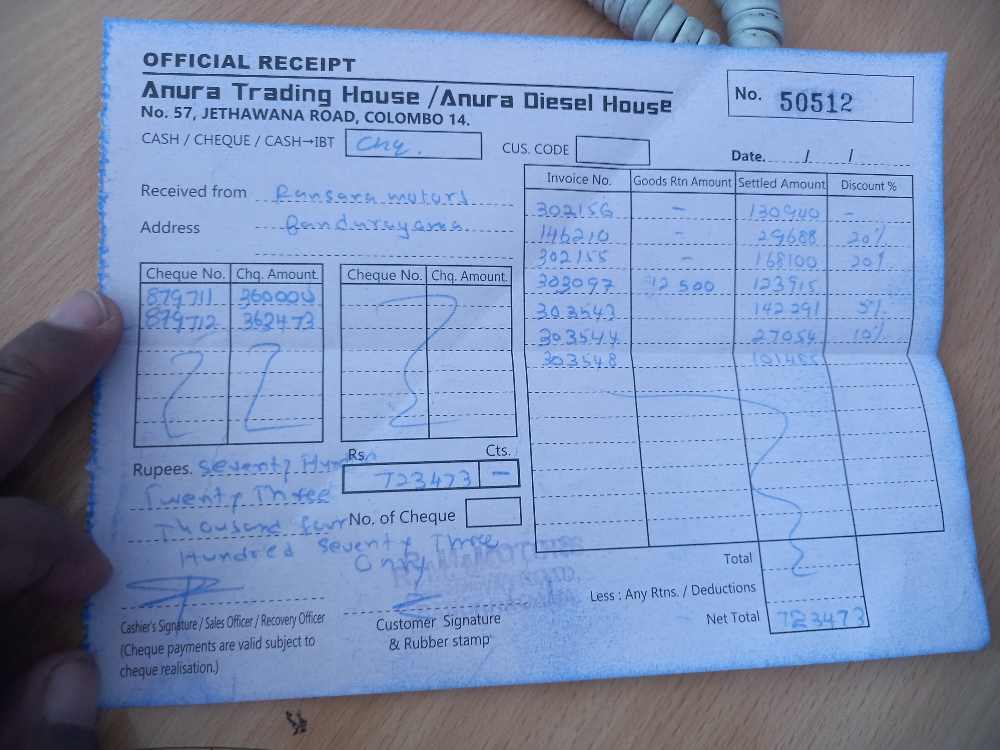 OFFICIAL RECEIPT
Anura Trading House / Anura Diesel House
No. 57, JETHAWANA ROAD, COLOMBO 14.
No. 50512
CASH / CHEQUE / CASH→IBT Chq.
CUS. CODE
Date. / /
Received from Ransara motors
Address Banduragama.
Invoice No. Goods Rtn Amount Settled Amount Discount %
302156 - 130940 -
146210 - 29688 20%
302155 - 168100 20%
303097 12 500 123915
303543 142291 5%
303544 27054 10%
303548 101485
Cheque No. Chq. Amount. Cheque No. Chq. Amount.
879711 360000
879712 363473
Rs. Cts.
Rupees. Seventy Hundred 723473 -
Twenty Three
Thousand four No. of Cheque
Hundred Seventy Three
Only
Total
Less : Any Rtns. / Deductions
Net Total 723473
Cashier's Signature / Sales Officer / Recovery Officer
Customer Signature
& Rubber stamp
(Cheque payments are valid subject to
cheque realisation.)